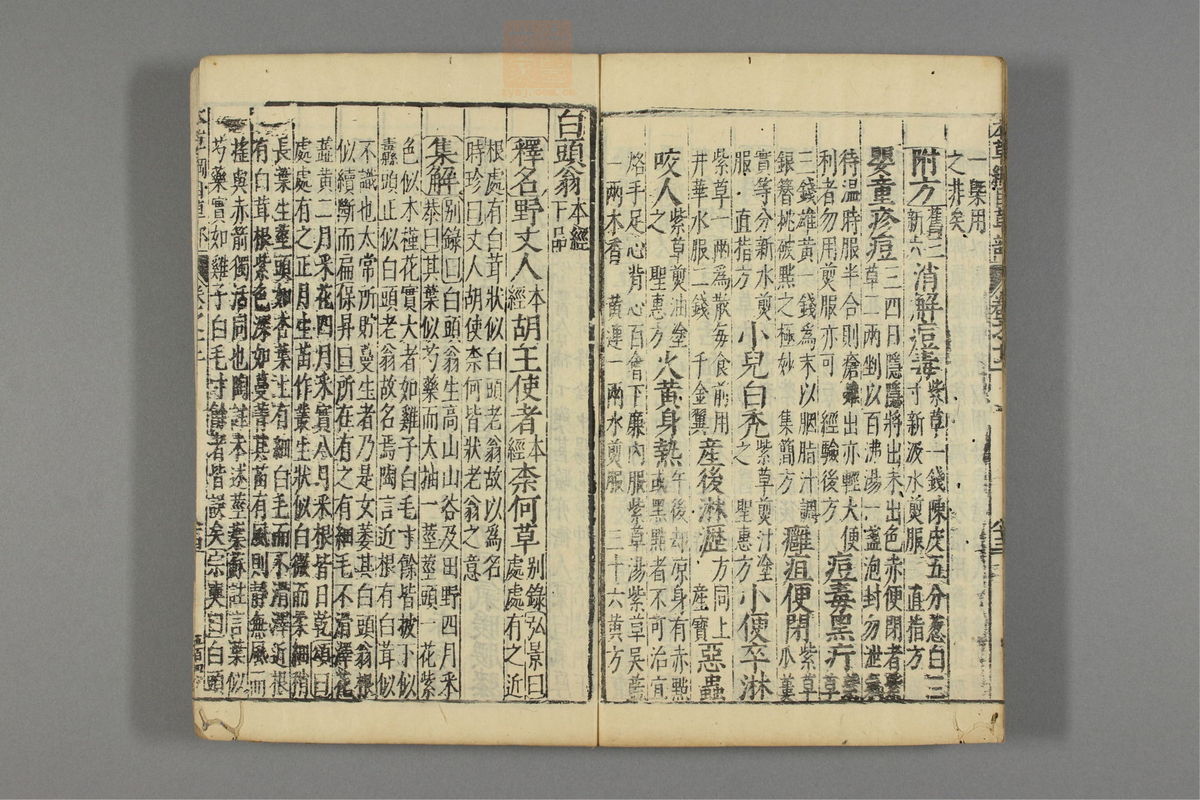 一槩用
之非矣
附方舊三新六消解痘毒紫草一錢陳皮五分葱白三寸新汲水煎服 直指方
嬰童疹痘三四日隱隱將出未出色赤便閉者紫草二兩剉以百沸湯一盞泡封勿泄氣
待温時服半合則瘡雖出亦輕大便利者勿用煎服亦可 經驗後方 痘毒黑疔紫草
三錢雄黄一錢爲末以胭脂汁調銀簪挑破點之極妙 集簡方 癰疽便閉紫草瓜蔞
實等分新水煎服 直指方 小兒白禿紫草煎汁塗之 聖惠方 小便卒淋
紫草一兩爲散每食前用井華水服二錢 千金翼 産後淋瀝方同上 産寶 惡蟲
咬人紫草煎油塗之 聖惠方 火黄身熱午後却凉身有赤點或黑點者不可治宜
烙手足心背心百會下廉内服紫草湯紫草吴藍一兩木香 黄連一兩水煎服 三十六黄方
白頭翁本經下品
釋名野丈人本經胡王使者本經柰何草别錄弘景曰處處有之近
根處有白茸狀似白頭老翁故以爲名
時珍曰丈人胡使柰何皆狀老翁之意
集解别錄曰白頭翁生高山山谷及田野四月采
恭曰其葉似芍藥而大抽一莖莖頭一花紫
色似木槿花實大者如雞子白毛寸餘皆被下似
纛頭正似白頭老翁故名焉陶言近根有白茸似
不識也太常所貯蔓生者乃是女萎其白頭翁根
似續斷而扁保昇曰所在有之有細毛不滑澤花
蘂黄二月采花四月采實八月采根皆日乾頌曰
處處有之正月生苗作叢生狀似白薇而柔細稍
長葉生莖頭如杏葉上有細白毛而不滑澤近根
有白茸根紫色深如蔓菁其苗有風則静無風而
揺與赤箭獨活同也陶註未述莖葉蘇註言葉似
芍藥實如雞子白毛寸餘者皆誤矣宗奭曰白頭